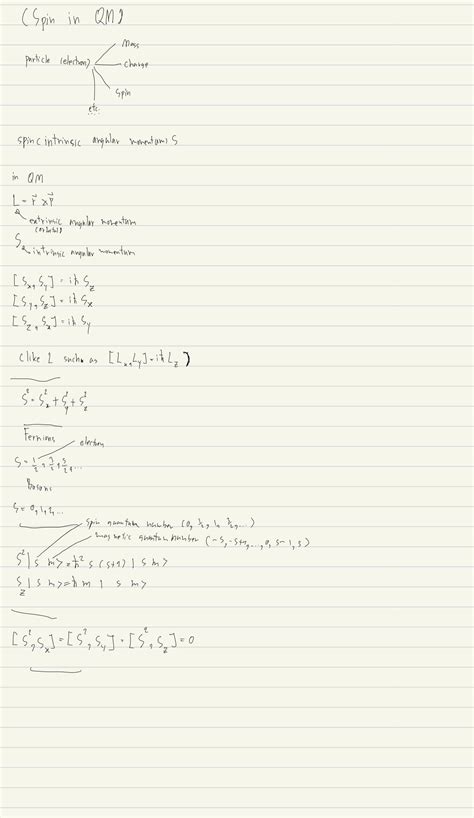 (Spin in QM)
Mass
particle (electron)
charge
Spin
etc.
spin (intrinsic angular momentum) S
in QM
L = r⃗ × p⃗
extrinsic angular momentum
(orbital)
S
intrinsic angular momentum
[Sx, Sy] = iħ Sz
[Sy, Sz] = iħ Sx
[Sz, Sx] = iħ Sy
(like L such as [Lx, Ly] = iħ Lz)
S² = Sx² + Sy² + Sz²
Fermions
electron
S = 1/2, 3/2, 5/2, ...
Bosons
S = 0, 1, 2, ...
spin quantum number (0, 1/2, 1, 3/2, ...)
magnetic quantum number (-s, -s+1, ..., 0, s-1, s)
S² | s m> = ħ² s (s+1) | s m>
Sz | s m> = ħ m | s m>
[S², Sx] = [S², Sy] = [S², Sz] = 0